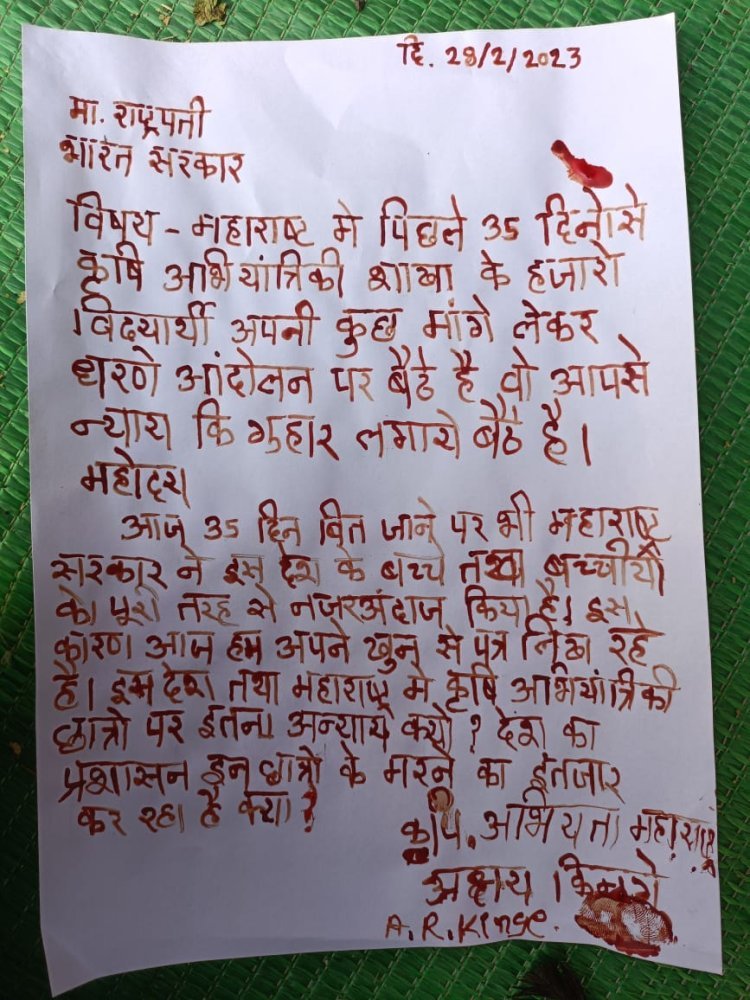 दि. 28/2/2023
मा. राष्ट्रपती
भारत सरकार
विषय - महाराष्ट मे पिछले 35 दिनोसे
कृषि अभियांत्रिकी शाखा के हजारो
विदयार्थी अपनी कुछ मांगे लेकर
धरणे आंदोलन पर बैठे है वो आपसे
न्याय कि गुहार लगाये बैठे है।
महोदय
आज 35 दिन बित जाने पर भी महाराष्ट्र
सरकार ने इस देश के बच्चे तथा बच्चीयो
को पूरी तरह से नजरअंदाज किया है। इस
कारण आज हम अपने खुन से पत्र लिख रहे
है। इस देश तथा महाराष्ट्र मे कृषि अभियांत्रिकी
छात्रो पर इतना अन्याय क्यो ? देश का
प्रशासन इन छात्रो के मरने का इंतजार
कर रहा है क्या ?
कृषि. अभियंता महाराष्ट्र
अक्षय किनगे
A.R.Kinge.